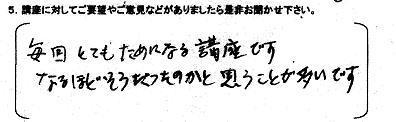 5. 講座に対してご要望やご意見などがありましたら是非お聞かせ下さい。
毎回 とてもためになる 講座です
なるほどそうだったのかと 思うことが多いです